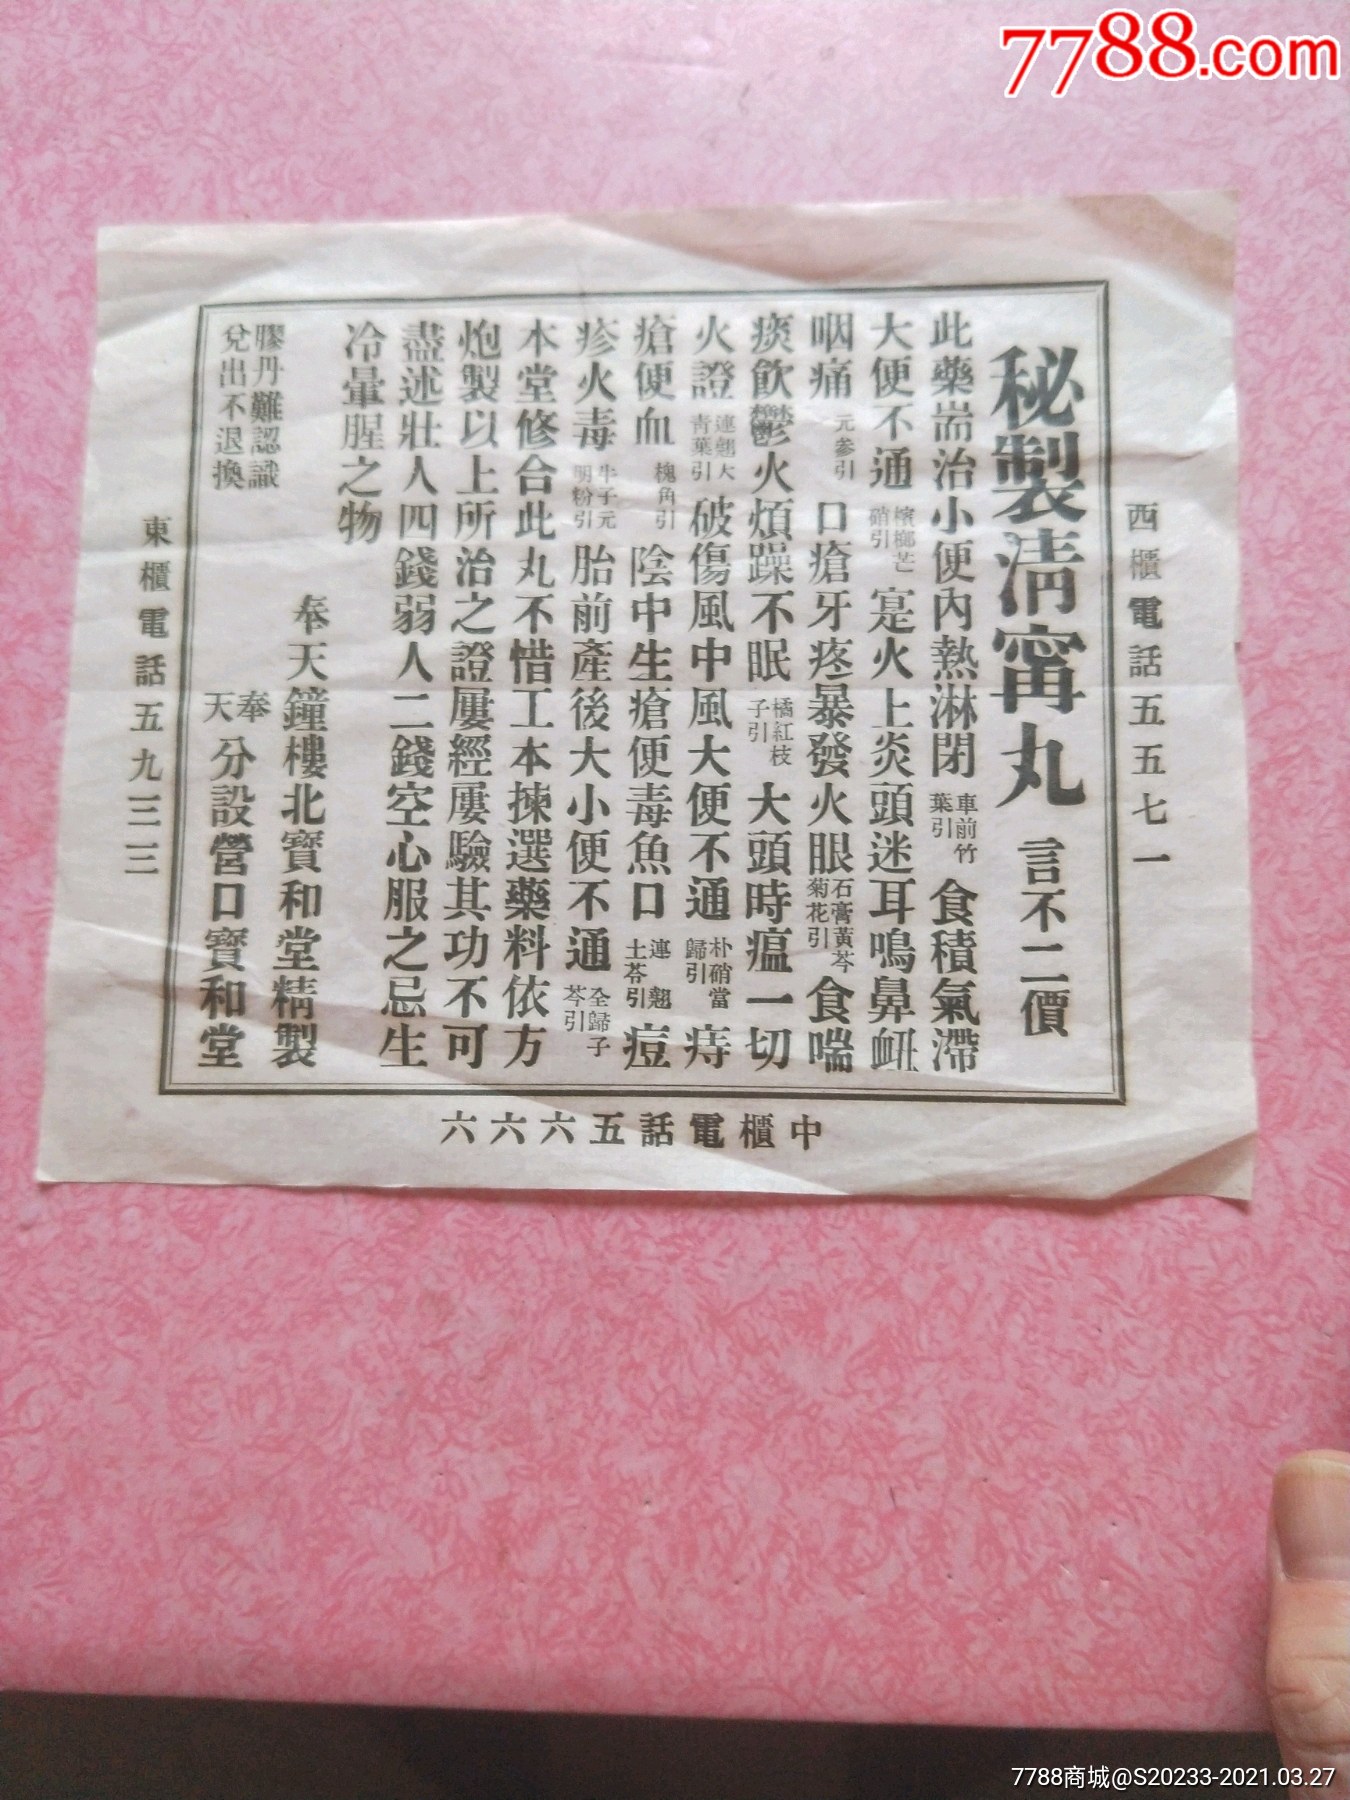 7788.com
西櫃電話五五七一
秘製清甯丸 言不二價
此藥耑治小便內熱淋閉 車前竹葉引 食積氣滯
大便不通 檳榔芒硝引 寔火上炎頭迷耳鳴鼻衄
咽痛 元參引 口瘡牙疼暴發火眼 石膏黃芩菊花引 食喘
痰飲鬱火煩躁不眠 橘紅枝子引 大頭時瘟一切
火證 連翹大青葉引 破傷風中風大便不通 朴硝當歸引 痔
瘡便血 槐角引 陰中生瘡便毒魚口 連翹土苓引 痘
疹火毒 牛子元明粉引 胎前產後大小便不通 全歸子芩引
本堂修合此丸不惜工本揀選藥料依方
炮製以上所治之證屢經屢驗其功不可
盡述壯人四錢弱人二錢空心服之忌生
冷暈腥之物
奉天鐘樓北寶和堂精製
膠丹難認識
兌出不退換
奉天分設營口寶和堂
東櫃電話五九三三
中櫃電話五六六六
7788商城@S20233-2021.03.27